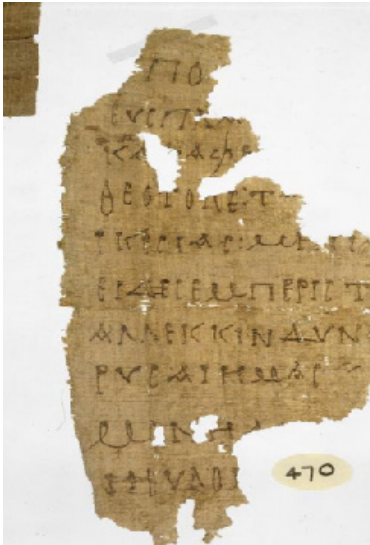 ΠΟ
ΕΥCΠ
ΚΑΤΑΦΕ
ΘΕΟΤΟΚΕΤ
ΙΚΕCΙΑCΜΗΠΑΡ
ΕΙΔΗCΕΜΠΕΡΙCΤ
ΑΛΛΕΚΚΙΝΔΥΝ
ΡΥCΑΙΗΜΑC
ΜΟΝΗ
470